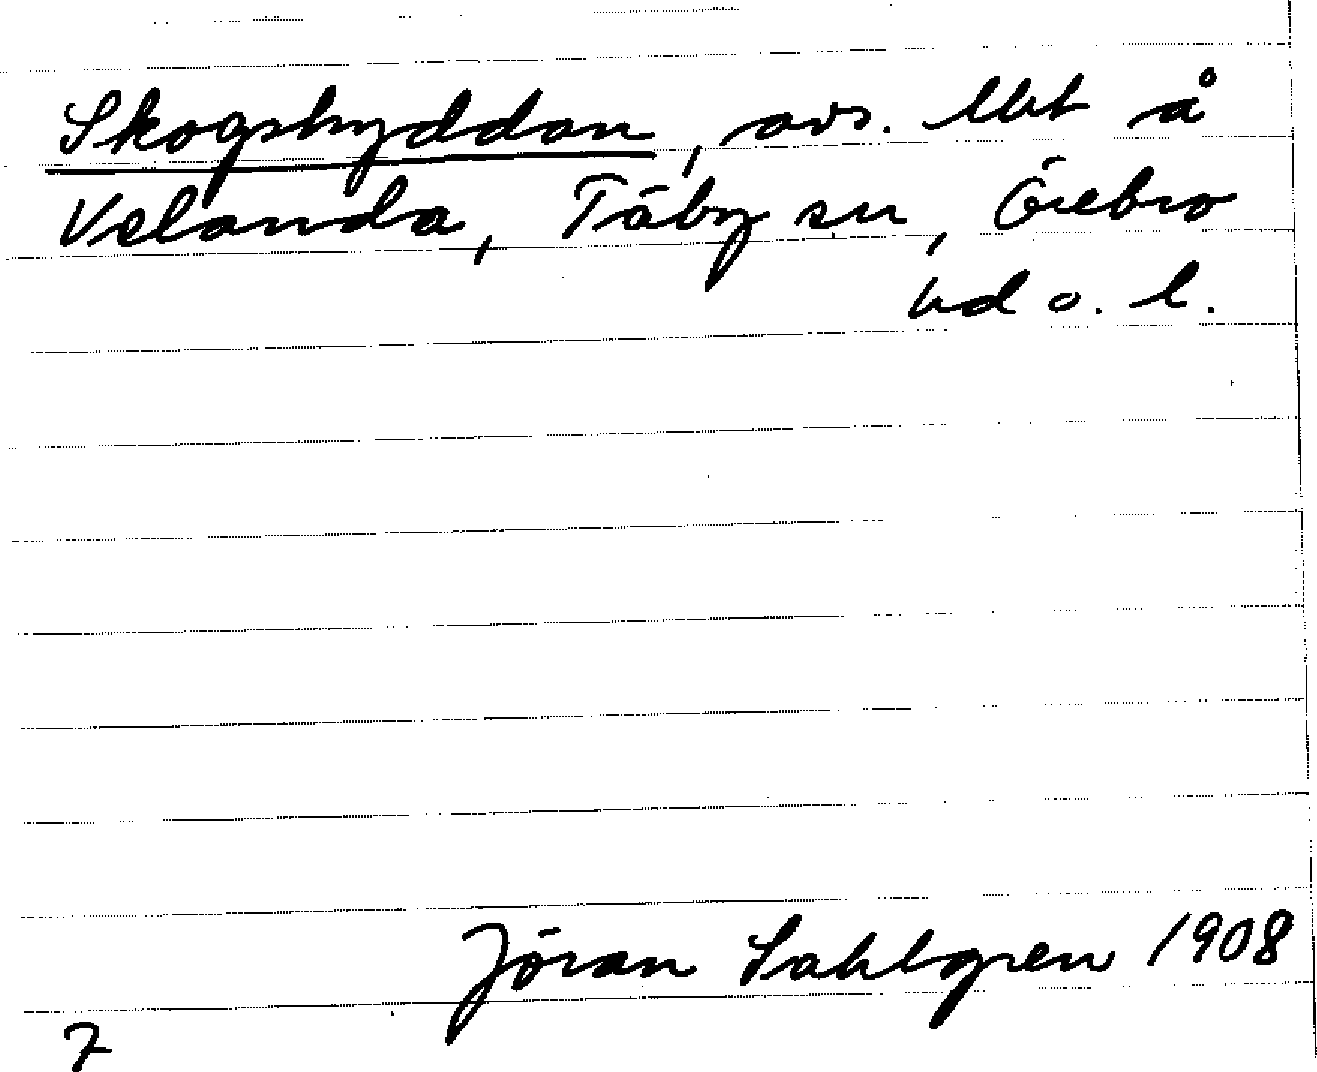 Skogshyddan, avs. lht å
Velanda, Täby sn, Örebro
hd o. l.
Jöran Sahlgren 1908
7